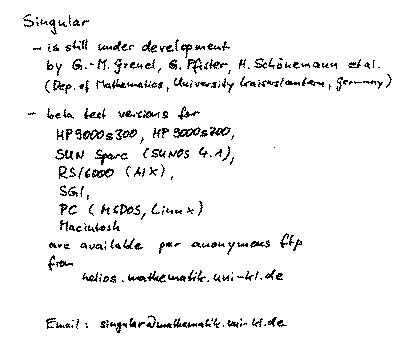 Singular
- is still under development
by G.-M. Greuel, G. Pfister, H. Schönemann et al.
(Dep. of Mathematics, University Kaiserslautern, Germany)
- beta test versions for
HP9000s300, HP 9000s700,
SUN Sparc (SUNOS 4.1),
RS/6000 (AIX),
SGI,
PC (MSDOS, Linux)
Macintosh
are available per anonymous ftp
from
helios.mathematik.uni-kl.de
Email: singular@mathematik.uni-kl.de